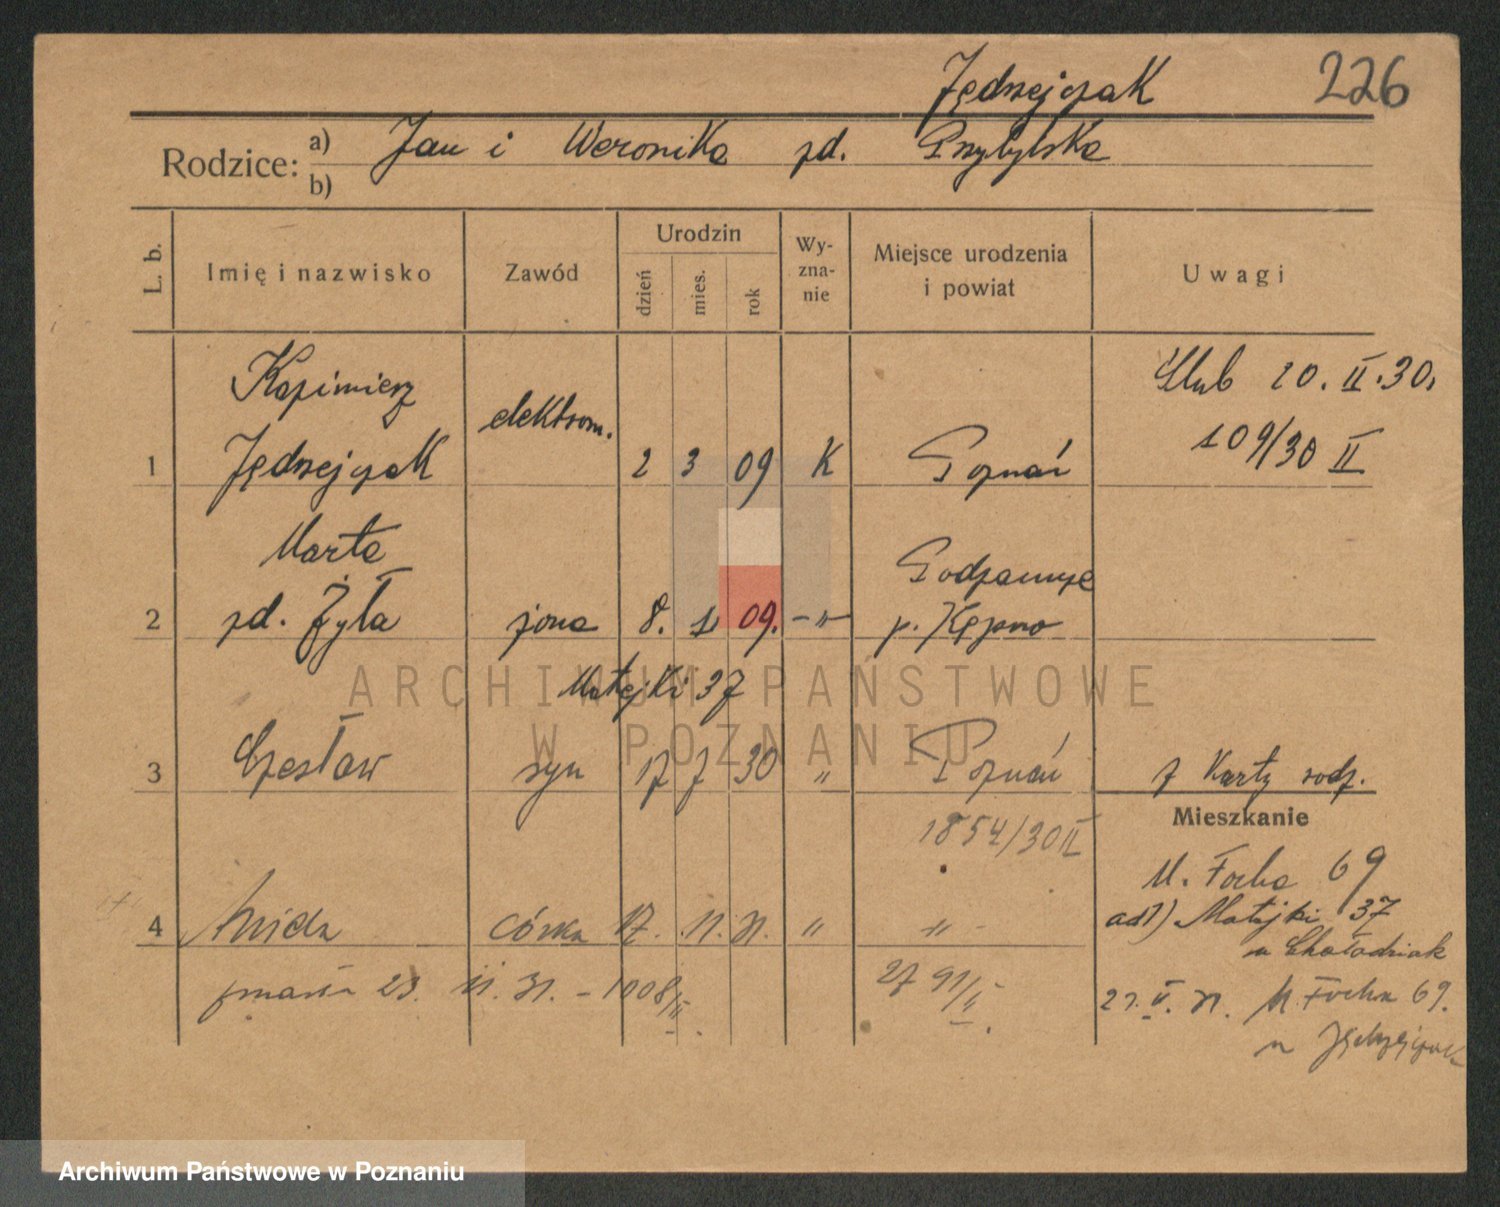 Jędrzejczak 226
Rodzice: a) Jan i Weronika zd. Przybylska
b)
L. b. Imię i nazwisko Zawód Urodzin dzień mies. rok Wy-zna-nie Miejsce urodzenia i powiat Uwagi
Kazimierz Ślub 20. II. 30.
elektrom. 109/30 II
1 Jędrzejczak 2 3 09 K Poznań
Marta Podzamcze
2 zd. Żyła żona 8. 1 09. -„- p. Kępno
Matejki 37
3 Czesław syn 17 7 30 „ Poznań z karty rodz.
1854/30 II Mieszkanie
M. Focha 69
ad1) Matejki 37
4 córka 17. 11. 31. „ -„-
u Chołodniak
zmarła 23. 11. 31. - 1008/II. 2791/II. 21. V. 31. M. Focha 69.
u Jędrzejczak
ARCHIWUM PAŃSTWOWE
W POZNANIU
Archiwum Państwowe w Poznaniu